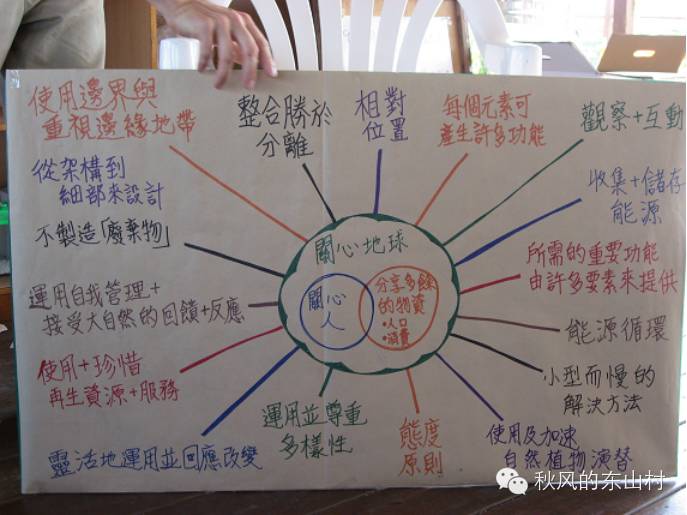 使用邊界與
重視邊緣地帶
整合勝於
分離
相對
位置
每個元素可
產生許多功能
觀察+互動
收集+儲存
能源
所需的重要功能
由許多要素來提供
能源循環
小型而慢的
解決方法
使用及加速
自然植物演替
態度
原則
運用並尊重
多樣性
靈活地運用並回應改變
使用+珍惜
再生資源+服務
運用自我管理+
接受大自然的回饋+反應
不製造「廢棄物」
從架構到
細部來設計
關心地球
關心
人
分享多餘
的物資
•人口
•消費
秋风的东山村